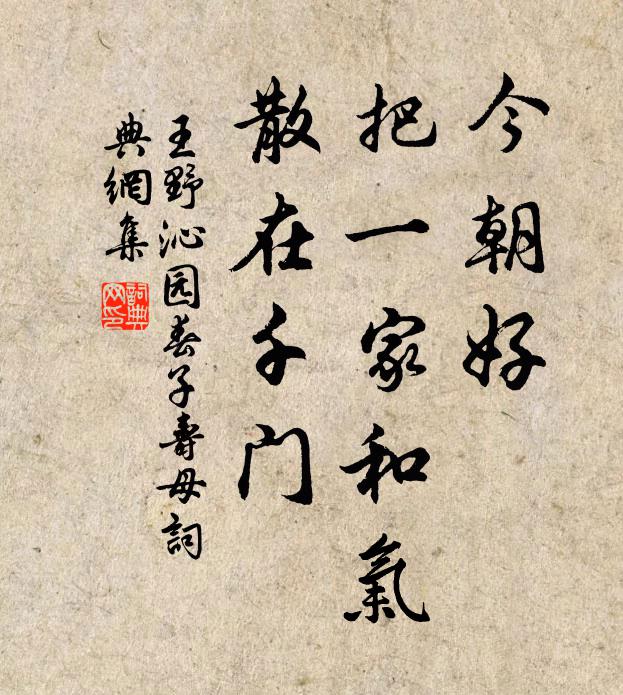 今朝好
把一家和氣
散在千门
王野沁园春子壽母詞
典網集
詞典網印